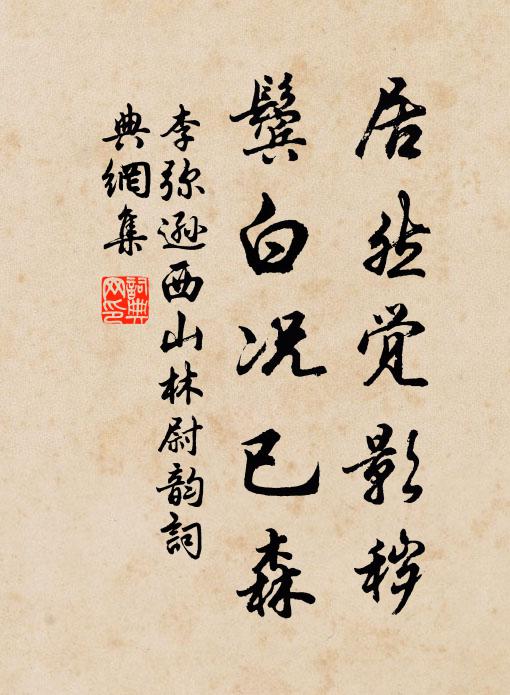 居然觉影秽
鬓白况已森
李弥逊西山林尉韵詞
典網集
詞典网印